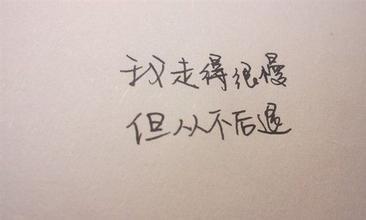 我走得很慢
但从不后退